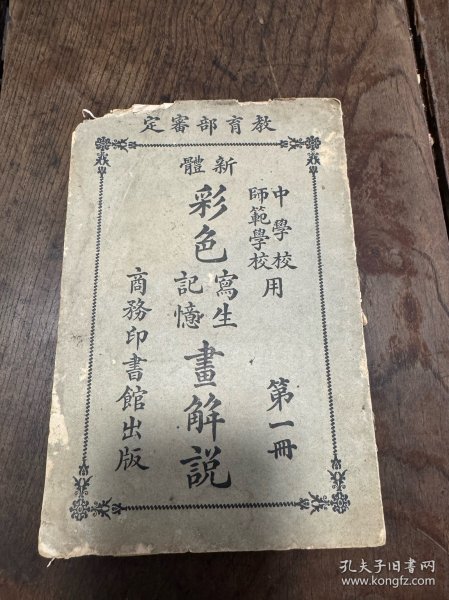 教育部審定
中學校
師範學校
用
第一冊
新體
彩色
寫生
記憶
畫解説
商務印書館出版
孔夫子旧书网
www.kongfz.com